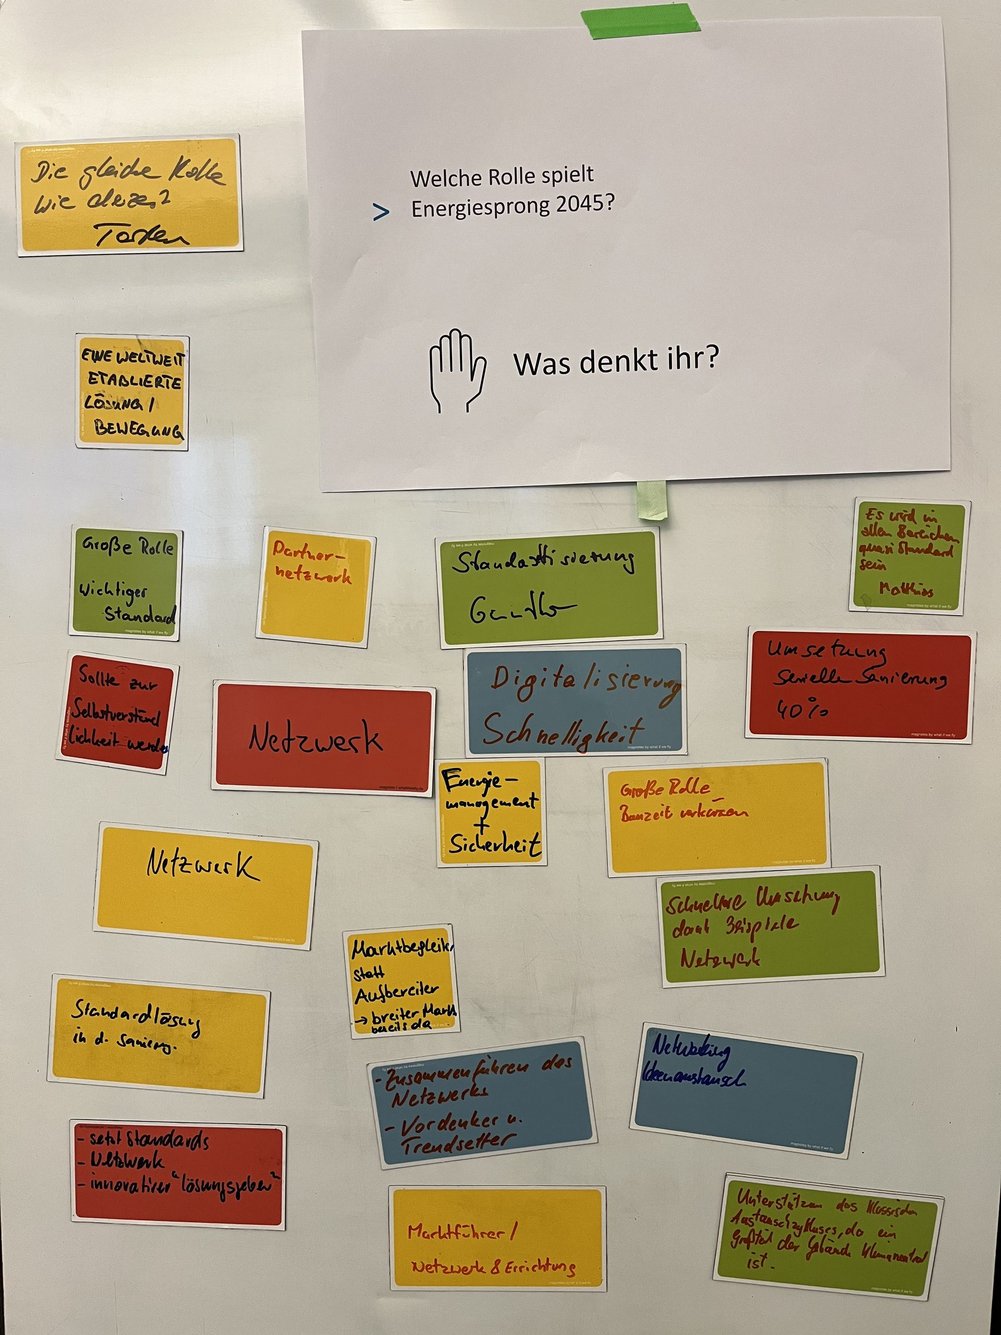 Welche Rolle spielt
> Energiesprong 2045?
Was denkt ihr?
Die gleiche Rolle
wie
EINE WELTWEIT
ETABLIERTE
LÖSUNG /
BEWEGUNG
Große Rolle
wichtiger
Standard
Partner-
netzwerk
Standartisierung
Es wird in
allen Bereichen
quasi Standard
sein
Matthias
Sollte zur
Selbstverständ
lichkeit werden
Netzwerk
Digitalisierung
Schnelligkeit
Umsetzung
Serielle Sanierung
40%
Energie-
management
+
Sicherheit
Große Rolle
Bauzeit verkürzen
Netzwerk
Schnellere Umsetzung
dank Beispiele
Netzwerk
Marktbegleiter
statt
Aufbereiter
→ breiter Markt
bereits da
Standardlösung
in d. Sanierg.
- Zusammenführen des
Netzwerks
- Vordenker u.
Trendsetter
Networking
Ideenaustausch
- setzt Standards
- Netzwerk
- innovativer "Lösungsgeber"
Marktführer /
Netzwerk & Errichtung
Unterstützen des klassischen
Austauschzykluses, da ein
Großteil der Gebäude klimaneutral
ist.